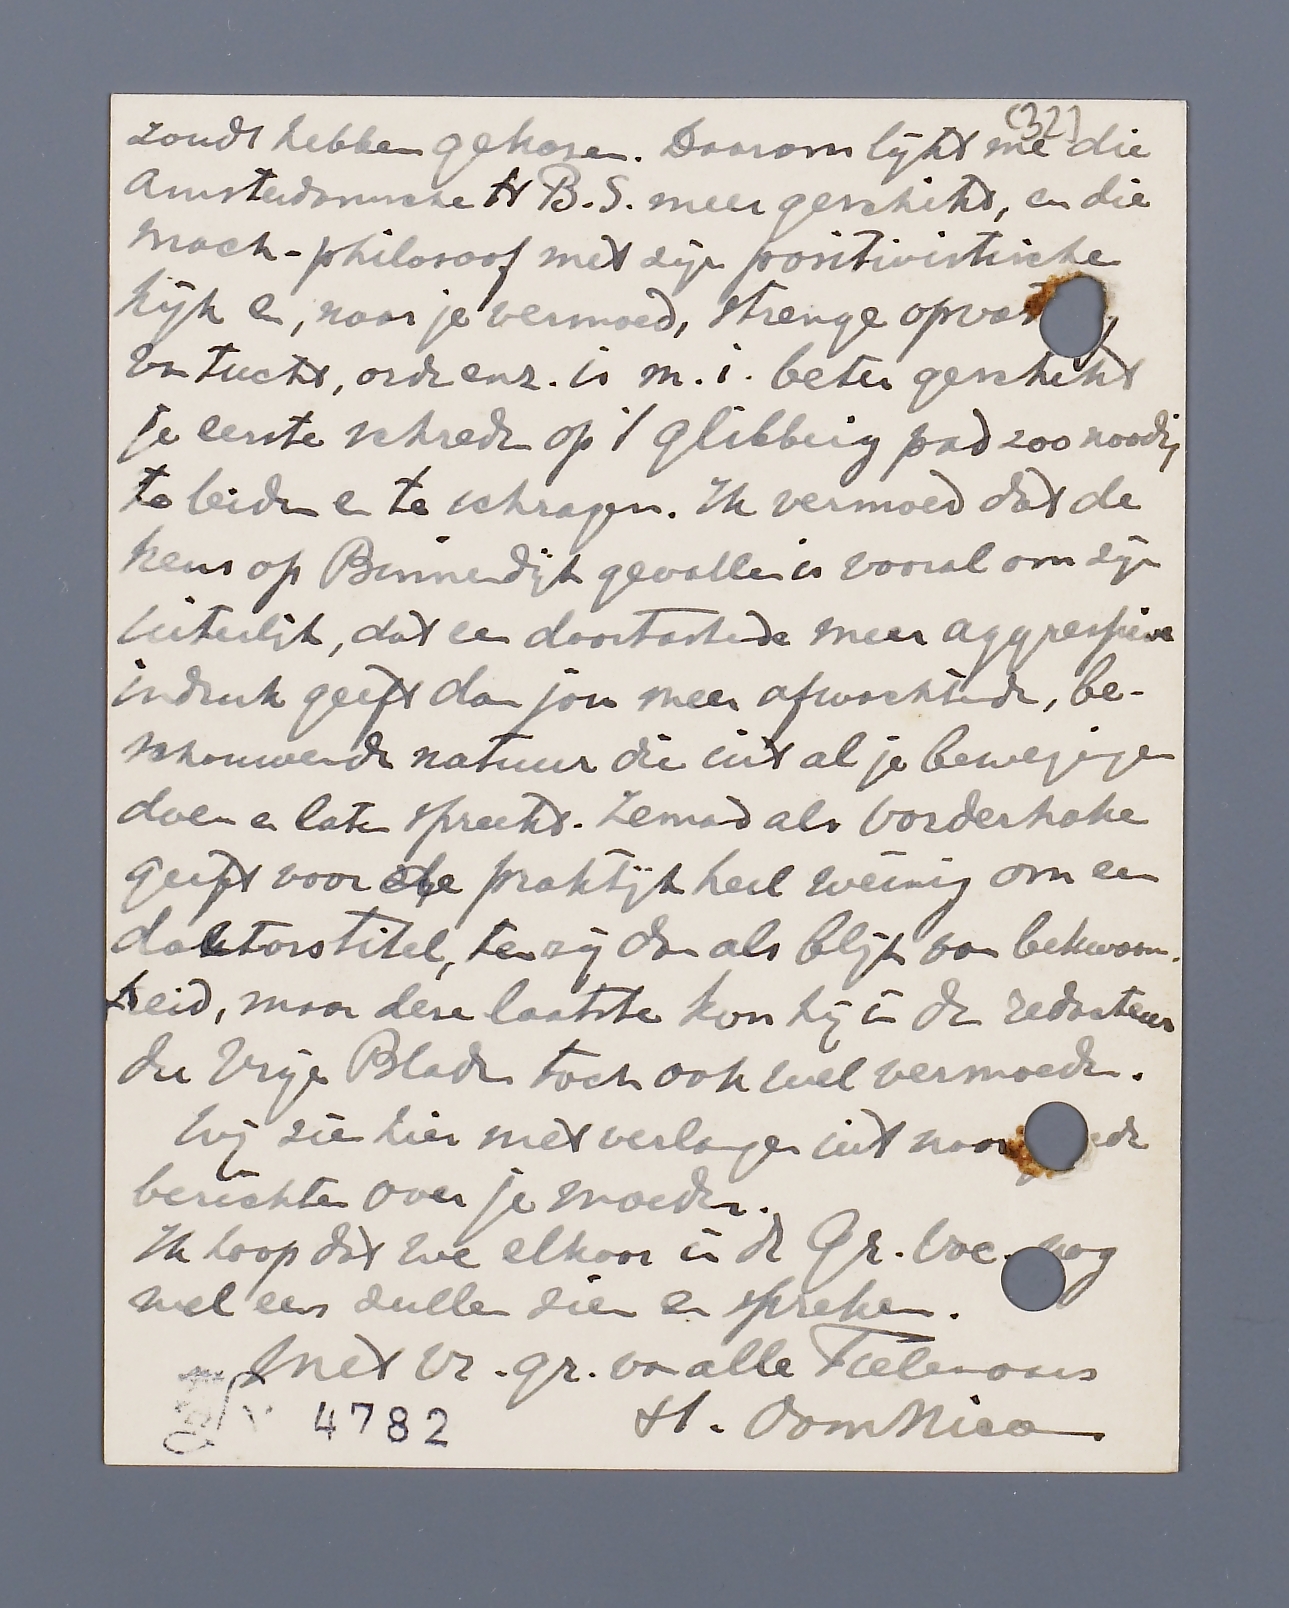 (32)
zoudt hebben gekozen. Daarom lijkt me die
Amsterdamsche H B.S. meer geschikt, en die
Mach-philosoof met zijn positivistische
kijk en, naar je vermoed, strenge opvat
van tucht, orde enz. is m. i. beter geschikt
je eerste schreden op 't glibberig pad zoo noodig
te leiden en te schragen. Ik vermoed dat de
keus op Binnendijk gevallen is vooral om zijn
uiterlijk, dat een doortastende meer aggressieve
indruk geeft dan jou meer afwachtende, be-
schouwende natuur die uit al je bewegingen
doen en laten spreekt. Iemand als Vorderhake
geeft voor de praktijk heel weinig om een
doktorstitel, tenzij dan als blijk van bekwaam-
heid, maar deze laatste kon hij in den redacteur
der Vrije Bladen toch ook wel vermoeden.
Wij zien hier met verlangen uit naar
berichten over je moeder.
Ik hoop dat we elkaar in de Gr. Vac. nog
wel eens zullen zien en spreken.
Met vr. gr. van alle Tielenaars
tt. Oom Nico
4782